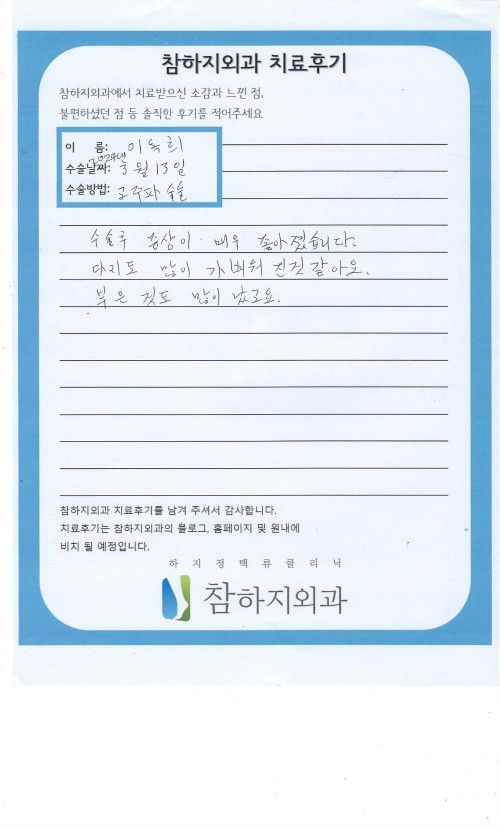 참하지외과 치료후기
참하지외과에서 치료받으신 소감과 느낀 점,
불편하셨던 점 등 솔직한 후기를 적어주세요
이 름: 이숙희
2024년
수술날짜: 3월 13일
수술방법: 고주파 수술
수술후 증상이 매우 좋아졌습니다.
다리도 많이 가벼워 진것 같아요.
부은 것도 많이 났고요.
참하지외과 치료후기를 남겨 주셔서 감사합니다.
치료후기는 참하지외과의 블로그, 홈페이지 및 원내에
비치 될 예정입니다.
하지정맥류클리닉
참하지외과